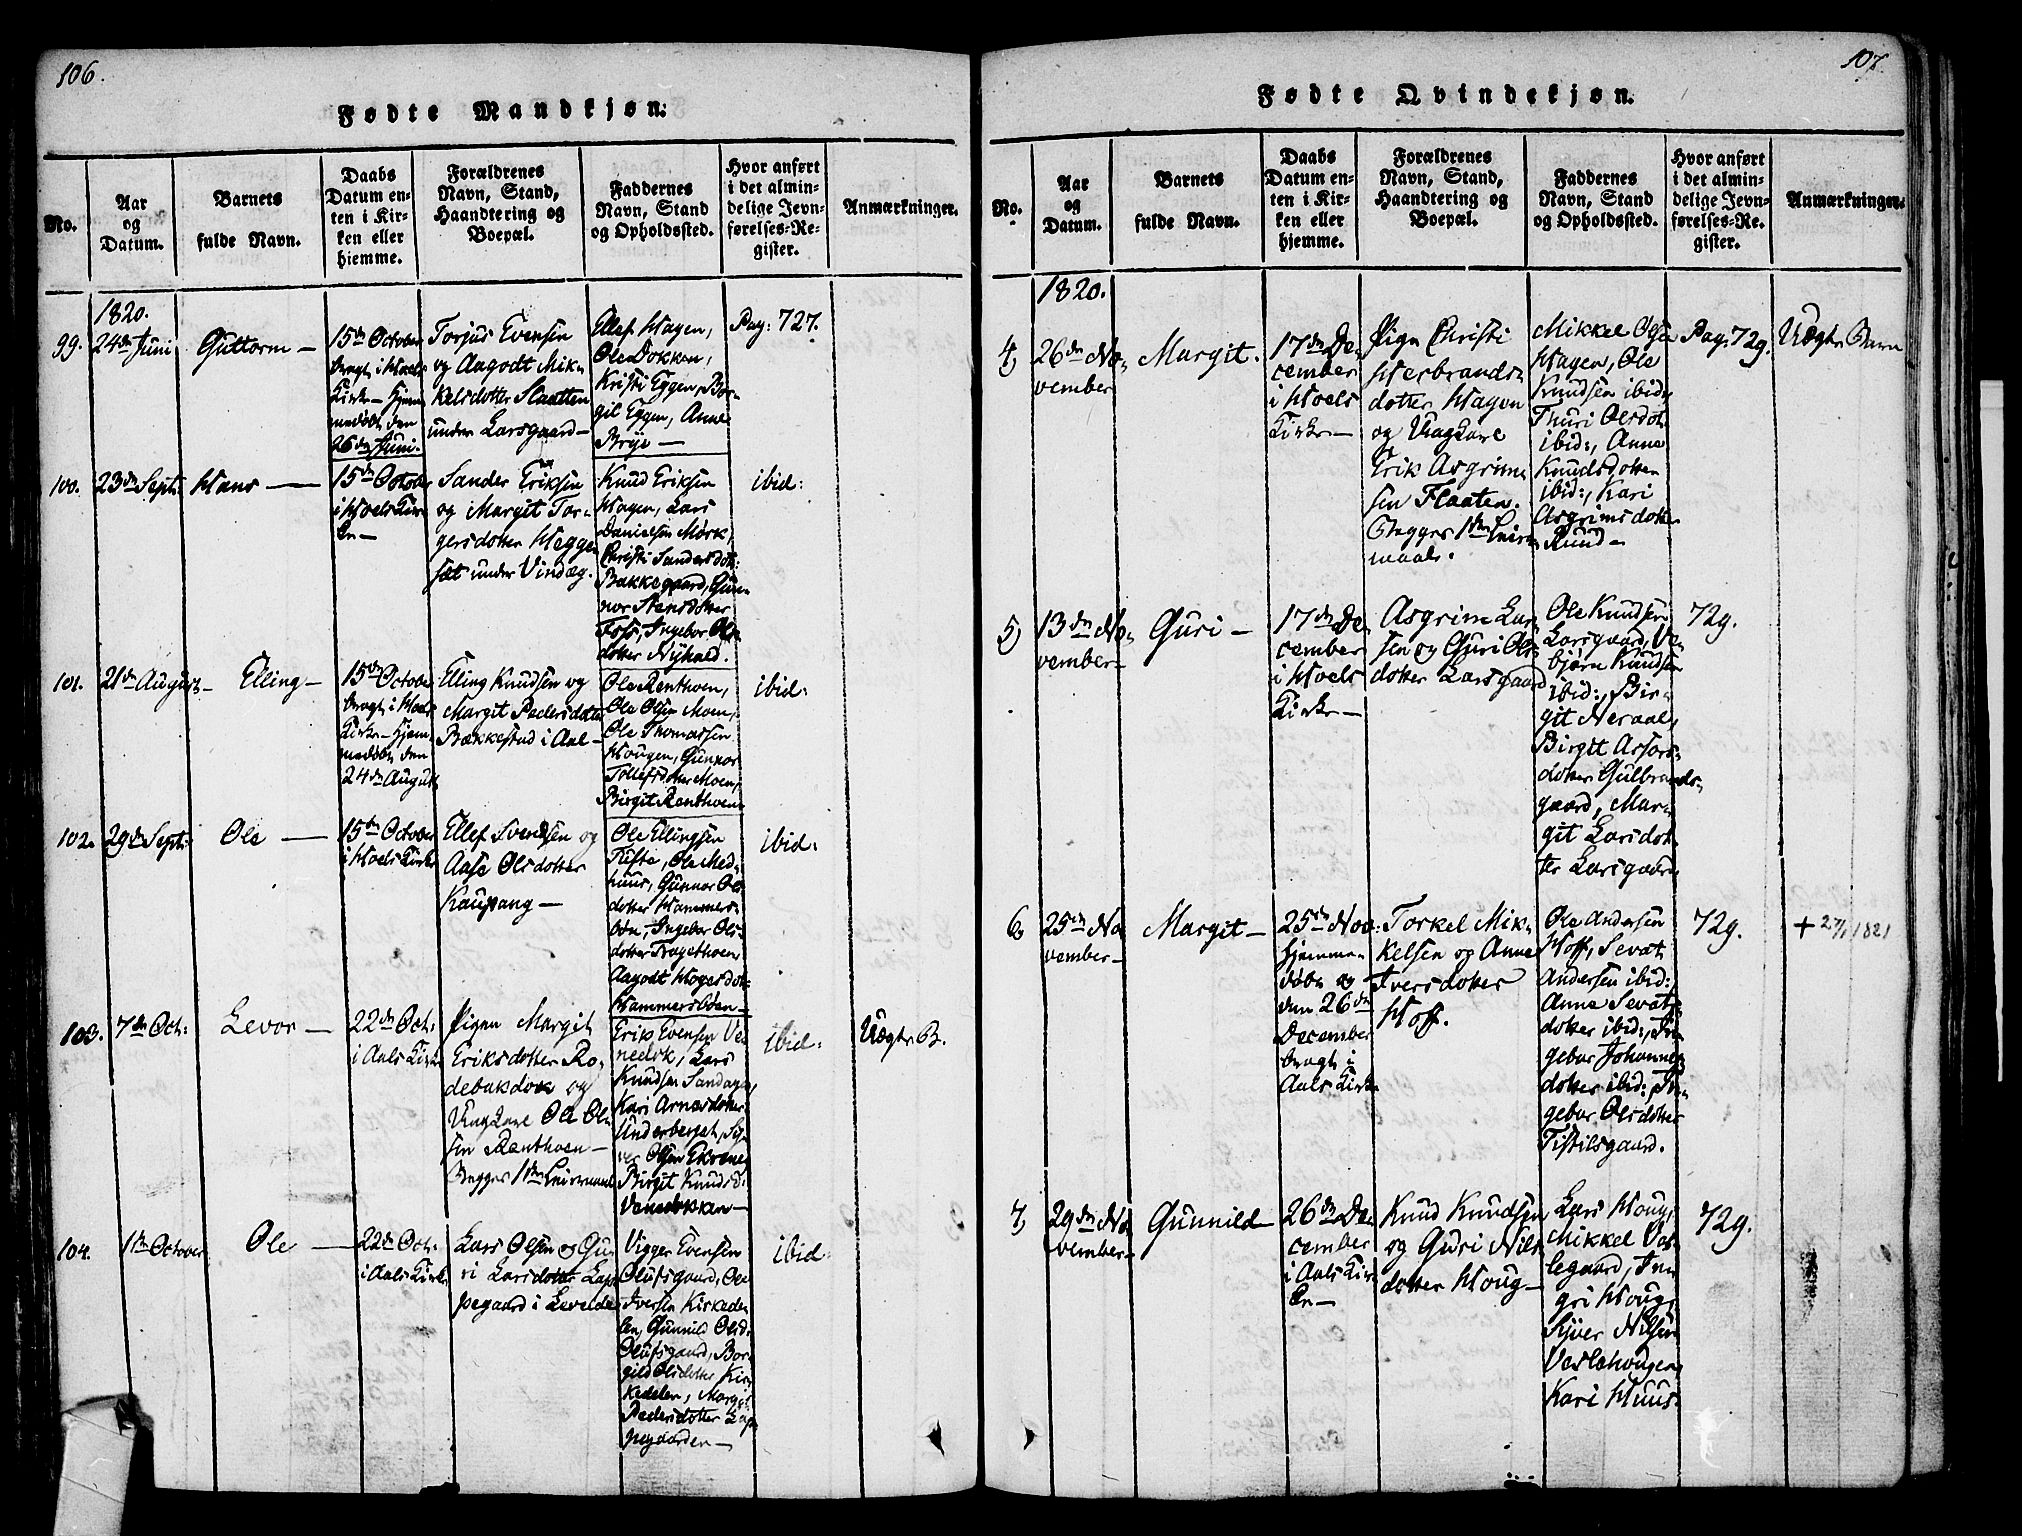 106.
Fødte Mandkjøn.
No.
Aar
og
Datum.
Barnets
fulde Navn.
Daabs
Datum en-
ten i Kir-
ken eller
hjemme.
Forældrenes
Navn, Stand,
Haandtering og
Boepæl.
Faddernes
Navn, Stand
og Opholdssted.
Hvor anført
i det almin-
delige Jevn-
førelses-Re-
gister.
Anmærkninger.
1820.
99.
24de Juni
Guttorm —
15de October
bragt i Hoels
Kirke — Hjem-
medøbt den
26de Juni.
Torjus Evensen
og Aagodt Mik-
kelsdotter Slaatten
under Larsgaard —
Ellef Hagen,
Ole Dokken,
Kristi Eggen, Bor-
gil Eggen, Anne
Brye —
Pag: 727.
100.
23de Sept:
Hans —
15de October
i Hoels Kir-
ke —
Sander Eriksen
og Margit Tor-
gersdotter Hegge
sæt under Vindæg.
Knud Eriksen
Hagen, Lars
Danielsen Mørk,
Christi Sandersdot:
Bakkegaard, Gun-
nor Stensdotter
Foss, Ingebor Ols-
dotter Nyhaed.
ibid:
101.
21de August —
Elling —
15de October
bragt i Hoels
Kirke — Hjem-
medøbt den
24de August
Elling Knudsen og
Margit Pedersdotter
Bækkestad i Aal —
Ole Renthoen,
Ole Olsen Moen,
Ole Thomassen
Hougen, Gunnor
Tollefsdotter Moen,
Birgit Renthoen
ibid:
102.
29de Sept:
Ole —
15de October
i Hoels Kirke
Ellef Svendsen og
Aase Olsdotter
Kaupang —
Ole Ellingsen
Tufte, Ole Med-
huus, Gunnor Ols
dotter Hammers-
bøn, Ingebor Ols-
dotter Tragethoen,
Aagodt Hogesdot:
Hammersbøen —
ibid:
103.
7de Oct:
Levor —
22de Oct:
i Aals Kirke
Pigen Margit
Eriksdotter Ro-
debakdok og
Ungkarl Ole Ol-
sen Renthoen —
Begges 1ste Leiermaal
Erik Evensen Ve-
nedok, Lars
Knudsen Sandager,
Kari Arnesdotter
Underberget, Sy-
ver Olsen Ekrene,
Birgit Knudsd:
Venedokken —
ibid:
Uægte B.
104.
1ste October
Ole —
22de Oct:
i Aals Kirke
Lars Olsen og Gu-
ri Larsdotter Lap-
pegaard i Levelde
Vigger Evensen
Olufsgaard, Ole
Iversen Kirkede-
len, Gunnild Olsd:
Olufsgaard, Bor-
gild Olsdotter Kir-
kedelen, Margit
Pedersdotter Lap-
pegaarden —
ibid:
107.
Fødte Qvindekjøn.
No.
Aar
og
Datum.
Barnets
fulde Navn.
Daabs
Datum en-
ten i Kir-
ken eller
hjemme.
Forældrenes
Navn, Stand,
Haandtering og
Boepæl.
Faddernes
Navn, Stand
og Opholdssted.
Hvor anført
i det almin-
delige Jevn-
førelses-Re-
gister.
Anmærkninger.
1820.
4,
26de No-
vember
Margit.
17de De-
cember
i Hoels
Kirke —
Pigen Christi
Herbrands-
dotter Hagen
og Ungkarl
Erik Asgrim-
sen Flaaten.
Begges 1ste Leier-
maal.
Mikkel Olsen
Hagen, Ole
Knudsen ibid:,
Thuri Olsdot:
ibid:, Anne
Knudsdotter
ibid:, Kari
Asgrimsdotter
Ruud —
Pag: 729.
Uægte Barn
5,
13de No-
vember —
Guri —
17de De-
cember
i Hoels
Kirke —
Asgrim Lar-
sen og Guri Ols-
dotter Larsgaard
Ole Knudsen
Larsgaard, Ve-
bjørn Knudsen
ibid:, Bir-
git Neraal,
Birgit Assors-
dotter Gulbrands-
gaard, Mar-
git Larsdot-
ter Larsgaard
729.
6,
25de No-
vember —
Margit —
25de Nov:
Hjemme-
døbt og
den 26de
December
bragt i
Aals Kirke
Torkel Mik-
kelsen og Anne
Iversdotter
Hoff.
Ole Andersen
Hoff, Sevat
Andersen ibid:,
Anne Sevats-
dotter ibid:, In-
gebor Johannes-
dotter ibid:, In-
gebor Olsdotter
Tistilsgaard.
729.
+ 27/1 1821
7,
29de No-
vember —
Gunnild —
26de De-
cember
i Aals Kir-
ke —
Knud Knudsen
og Guri Nils-
dotter Houg —
Lars Houg,
Mikkel Ves-
legaard, In-
gri Houg,
Syver Nilsen
Veslehougen,
Kari Huus.
729.